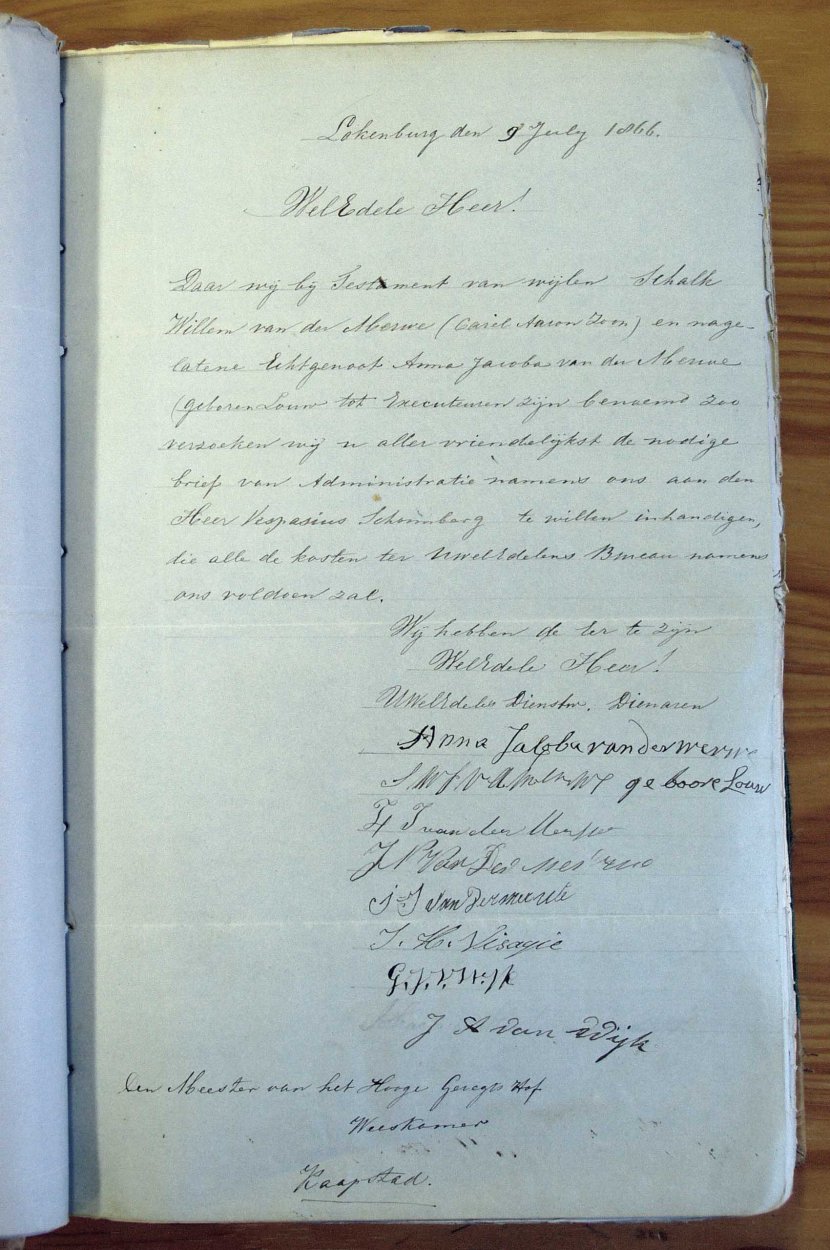 Lokenburg den 9 July 1866.
WelEdele Heer!
Daar wij by Testament van wijlen Schalk
Willem van der Merwe (Carel Aaron Zoon) en nage-
latene Echtgenoot Anna Jacoba van der Merwe
(geboren Louw tot Executeuren zijn benoemd zoo
verzoeken wij u aller vriendelijkst de nodige
brief van Administratie namens ons aan den
Heer Vespasius Schomberg te willen inhandigen,
die alle de kosten ter UwelEdelens Bureau namens
ons voldoen zal.
Wij hebben de Eer te zijn
WelEdele Heer!
UWelEdeles Dienstw. Dienaren
Anna Jacoba van der Merwe
geboore Louw
van der Merwe
J N Van Der Merwe
van der Merwe
J. H. Visagie
G. J. V. Wijk
J A van Wijk
Den Meester van het Hooge Geregts Hof
Weeskamer
Kaapstad.